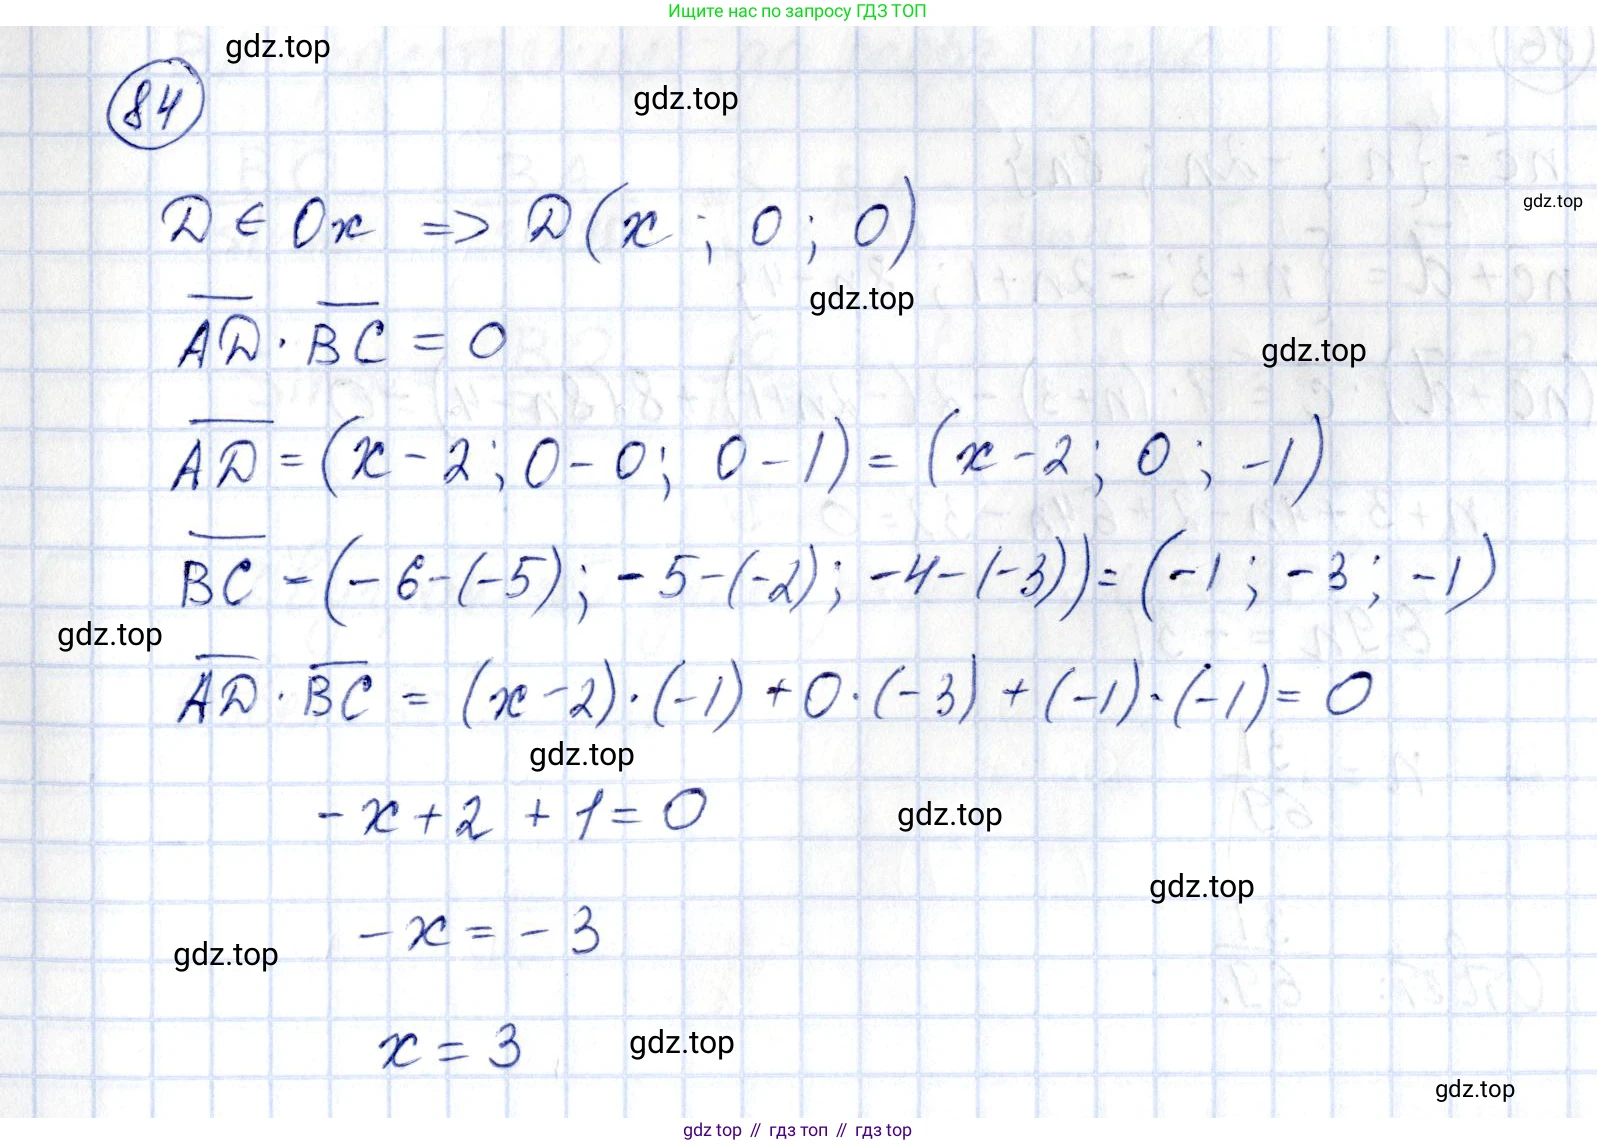 Ищите нас по запросу ГДЗ ТОП
gdz.top
84
gdz.top
D ∈ Ox => D(x ; 0 ; 0)
gdz.top
AD · BC = 0
gdz.top
gdz.top
AD = (x - 2 ; 0 - 0 ; 0 - 1) = (x - 2 ; 0 ; -1)
BC = (-6 - (-5) ; -5 - (-2) ; -4 - (-3)) = (-1 ; -3 ; -1)
gdz.top
AD · BC = (x - 2) · (-1) + 0 · (-3) + (-1) · (-1) = 0
gdz.top
-x + 2 + 1 = 0
gdz.top
gdz.top
-x = -3
gdz.top
x = 3
gdz.top
gdz.top
gdz.top // гдз топ // gdz.top